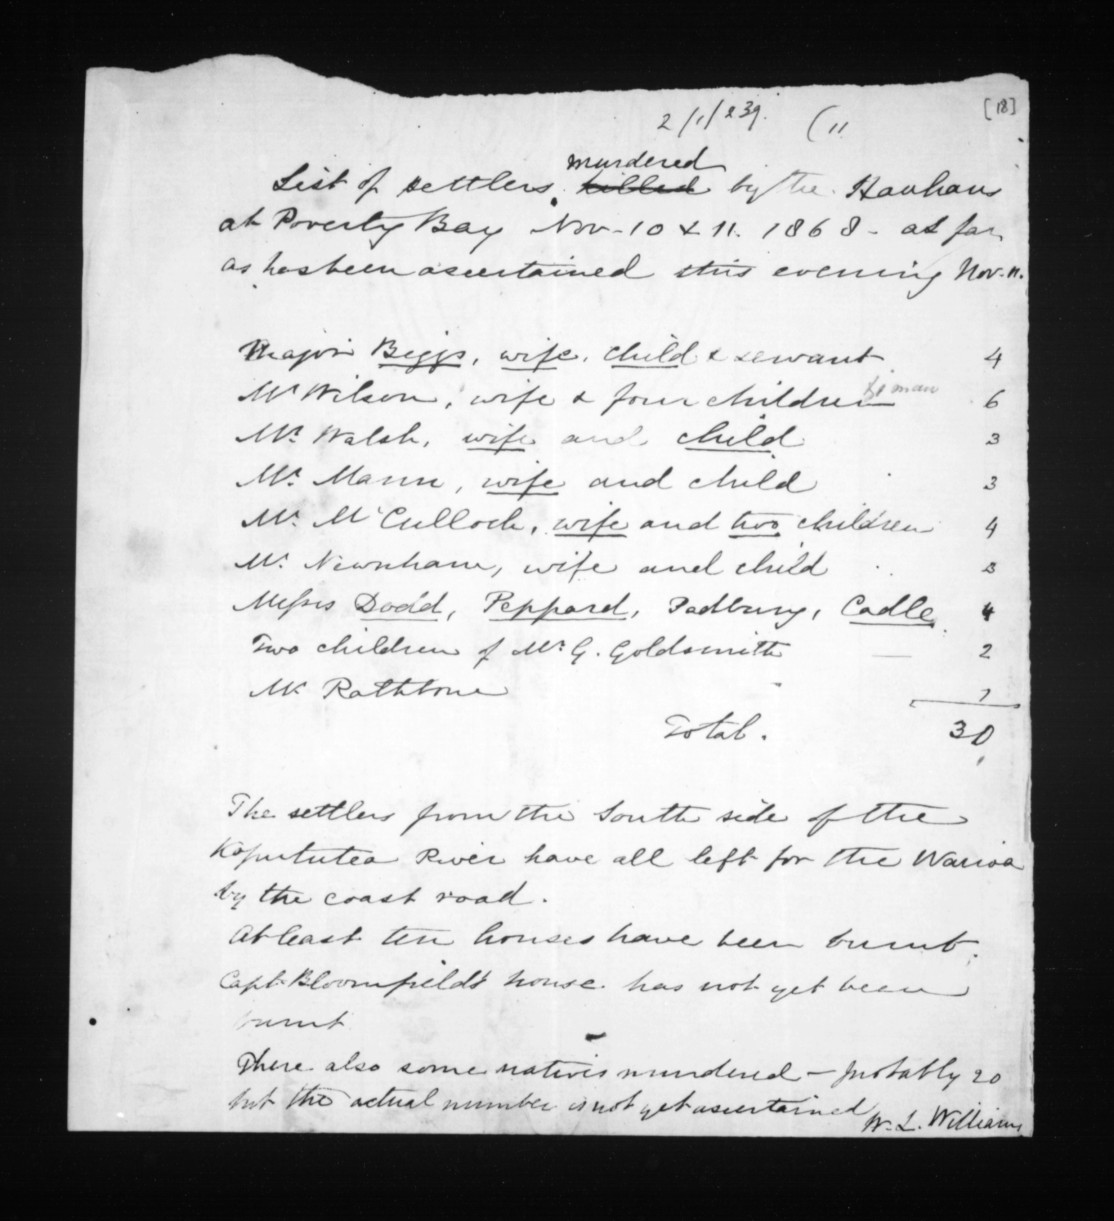 [18]
2/1/239. (11
murdered
List of settlers killed by the Hauhaus
at Poverty Bay Nov. 10 & 11. 1868 - as far
as has been ascertained this evening Nov. 11.
Major Biggs, wife, child & servant 4
Mr Wilson, wife & four children & 1 man 6
Mr. Walsh, wife and child 3
Mr. Mann, wife and child 3
Mr. McCulloch, wife and two children 4
Mr. Newnham, wife and child 3
Messrs Dodd, Peppard, Padbury, Cadle. 4
Two children of Mr G. Goldsmith — 2
Mr Rathbone 1
Total. 30
The settlers from the South side of the
Kopututea River have all left for the Wairoa
by the coast road.
At least ten houses have been burnt.
Capt. Bloomfield's house has not yet been
burnt
There also some natives murdered - probably 20
but the actual number is not yet ascertained
W. L. Williams